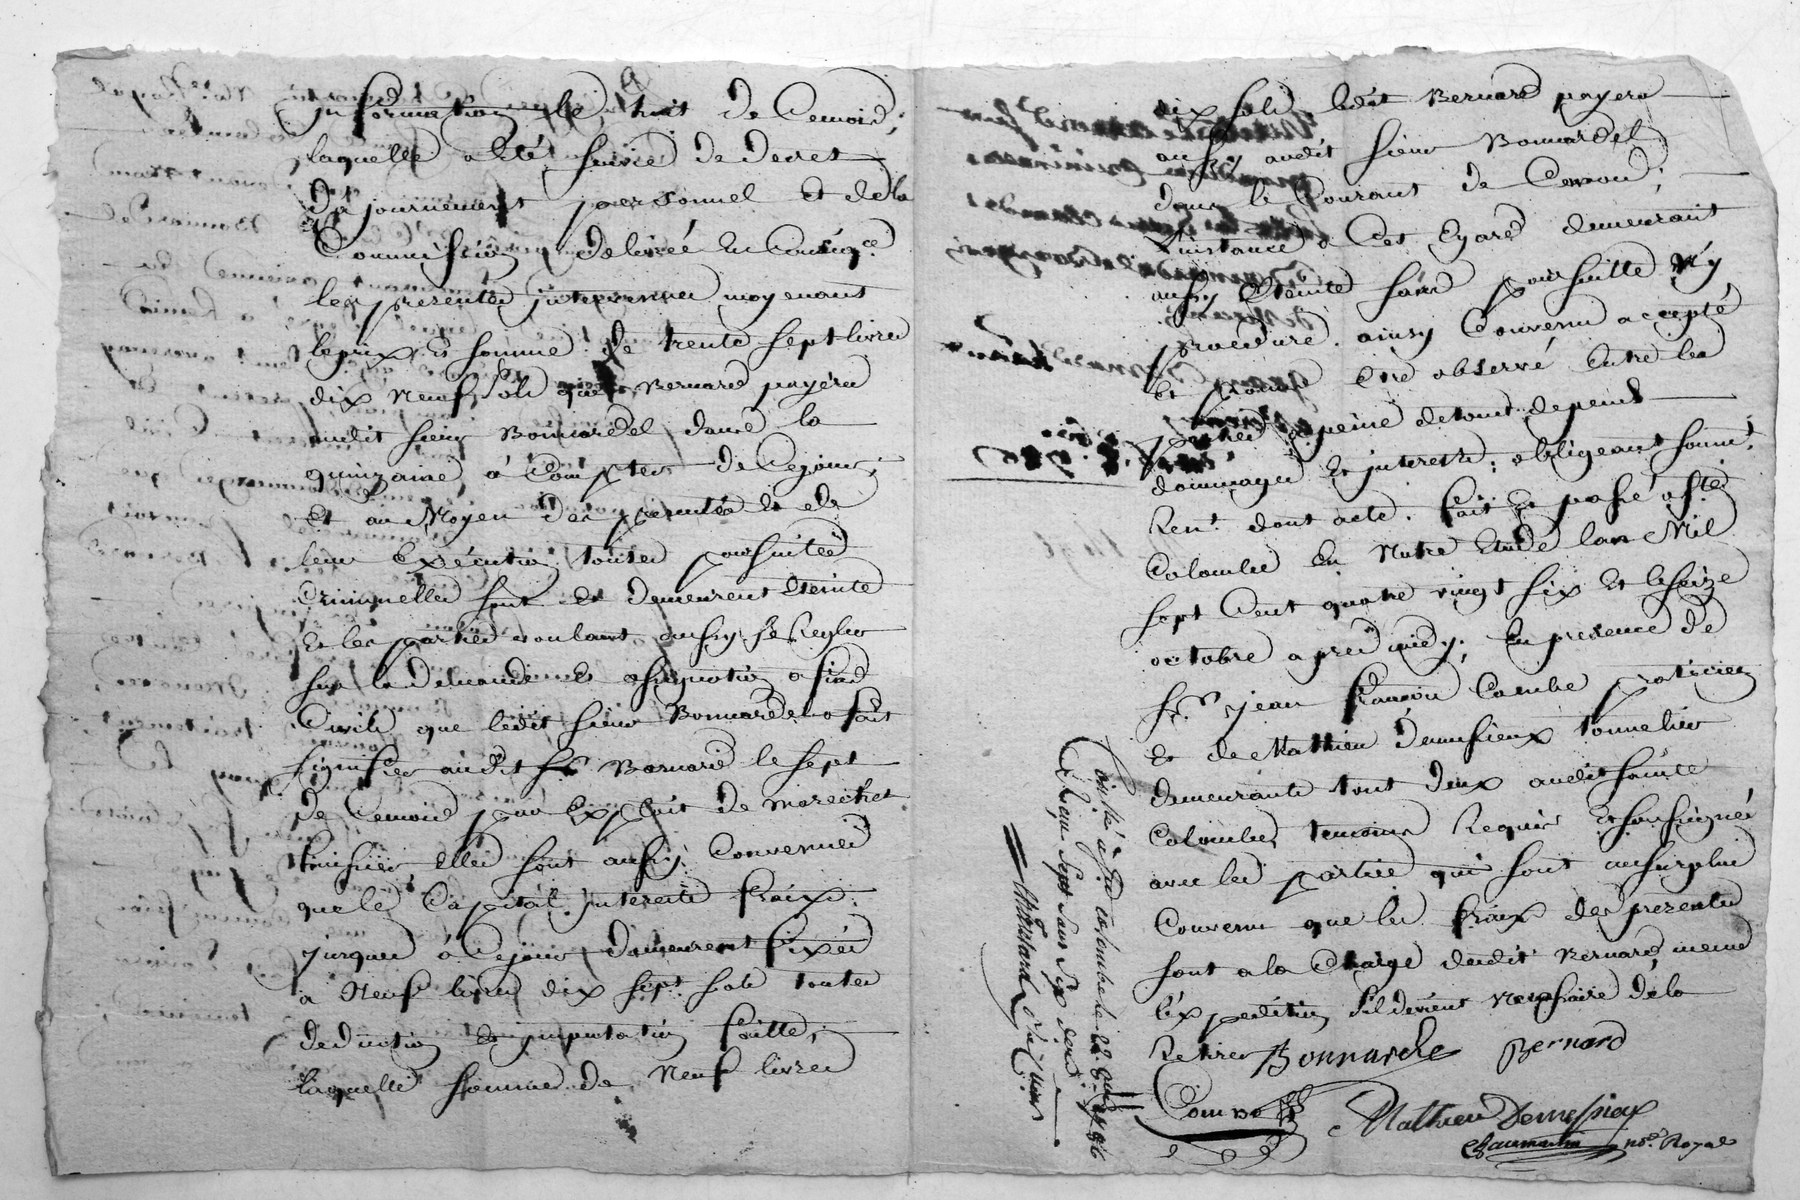 information le huit de Cemois,
laquelle a eté suivie de decret
D'ajournement personnel et dela
Commission delivrée en Conseqce.
les presentes intervenues moyenant
le prix et somme de trente sept livres
dix neuf sols que Bernard payera
audit sieur Bonnardel dans la
quinzaine, à Compter de Cejour,
Et au Moyen des presentes et de
leur Exécution toutes poursuites
Criminelles sont et demeurent Eteinte
Et les parties voulant aussy se Regler
sur la demande et assignation a fins
Civile que ledit sieur Bonnardel a fait
signifier audit sr. Bernard le sept
de Cemois par Exploit de marechet
huissier Elles sont aussy Convenues
que le Capital interets fraix
jusques à Cejour demeurent fixés
a Neuf livres dix sept sols toutes
deduction et imputation faitte,
laquelle somme de Neuf livres
dix sols ledit Bernard payera
aussy audit sieur Bonnardel
dans le Courant de Cemois,
Linstance a Cet Egard demeurant
aussy Eteinte sans poursuitte Ny
procedure. ainsy Convenu accepté
Et promis Etre observé Entre les
parties a peine de tout depens
dommages Et interets; obligeant soumt.
Rent. dont acte. fait Et passé a Ste.
Colombe En Notre Etude lan Mil
sept Cent quatre vingt six Et le seize
octobre apres midy, En presence de
sr. jean francois Combe praticien
Et de Mathieu Demesieux tonnelier
demeurants tout deux audit sainte
Colombe, temoins Requis Et soussignés
avec les parties qui sont au surplus
Convenu que les fraix des presentes
sont a la Charge dudit Bernard, meme
léxpedition sil devient Necessaire de la
Retirer Bonnardel Bernard
Combe Mathieu Demesieux
no.e Royal
Controllé a Ste colombe le 22 8bre 1786
Reçu sept sous six den.